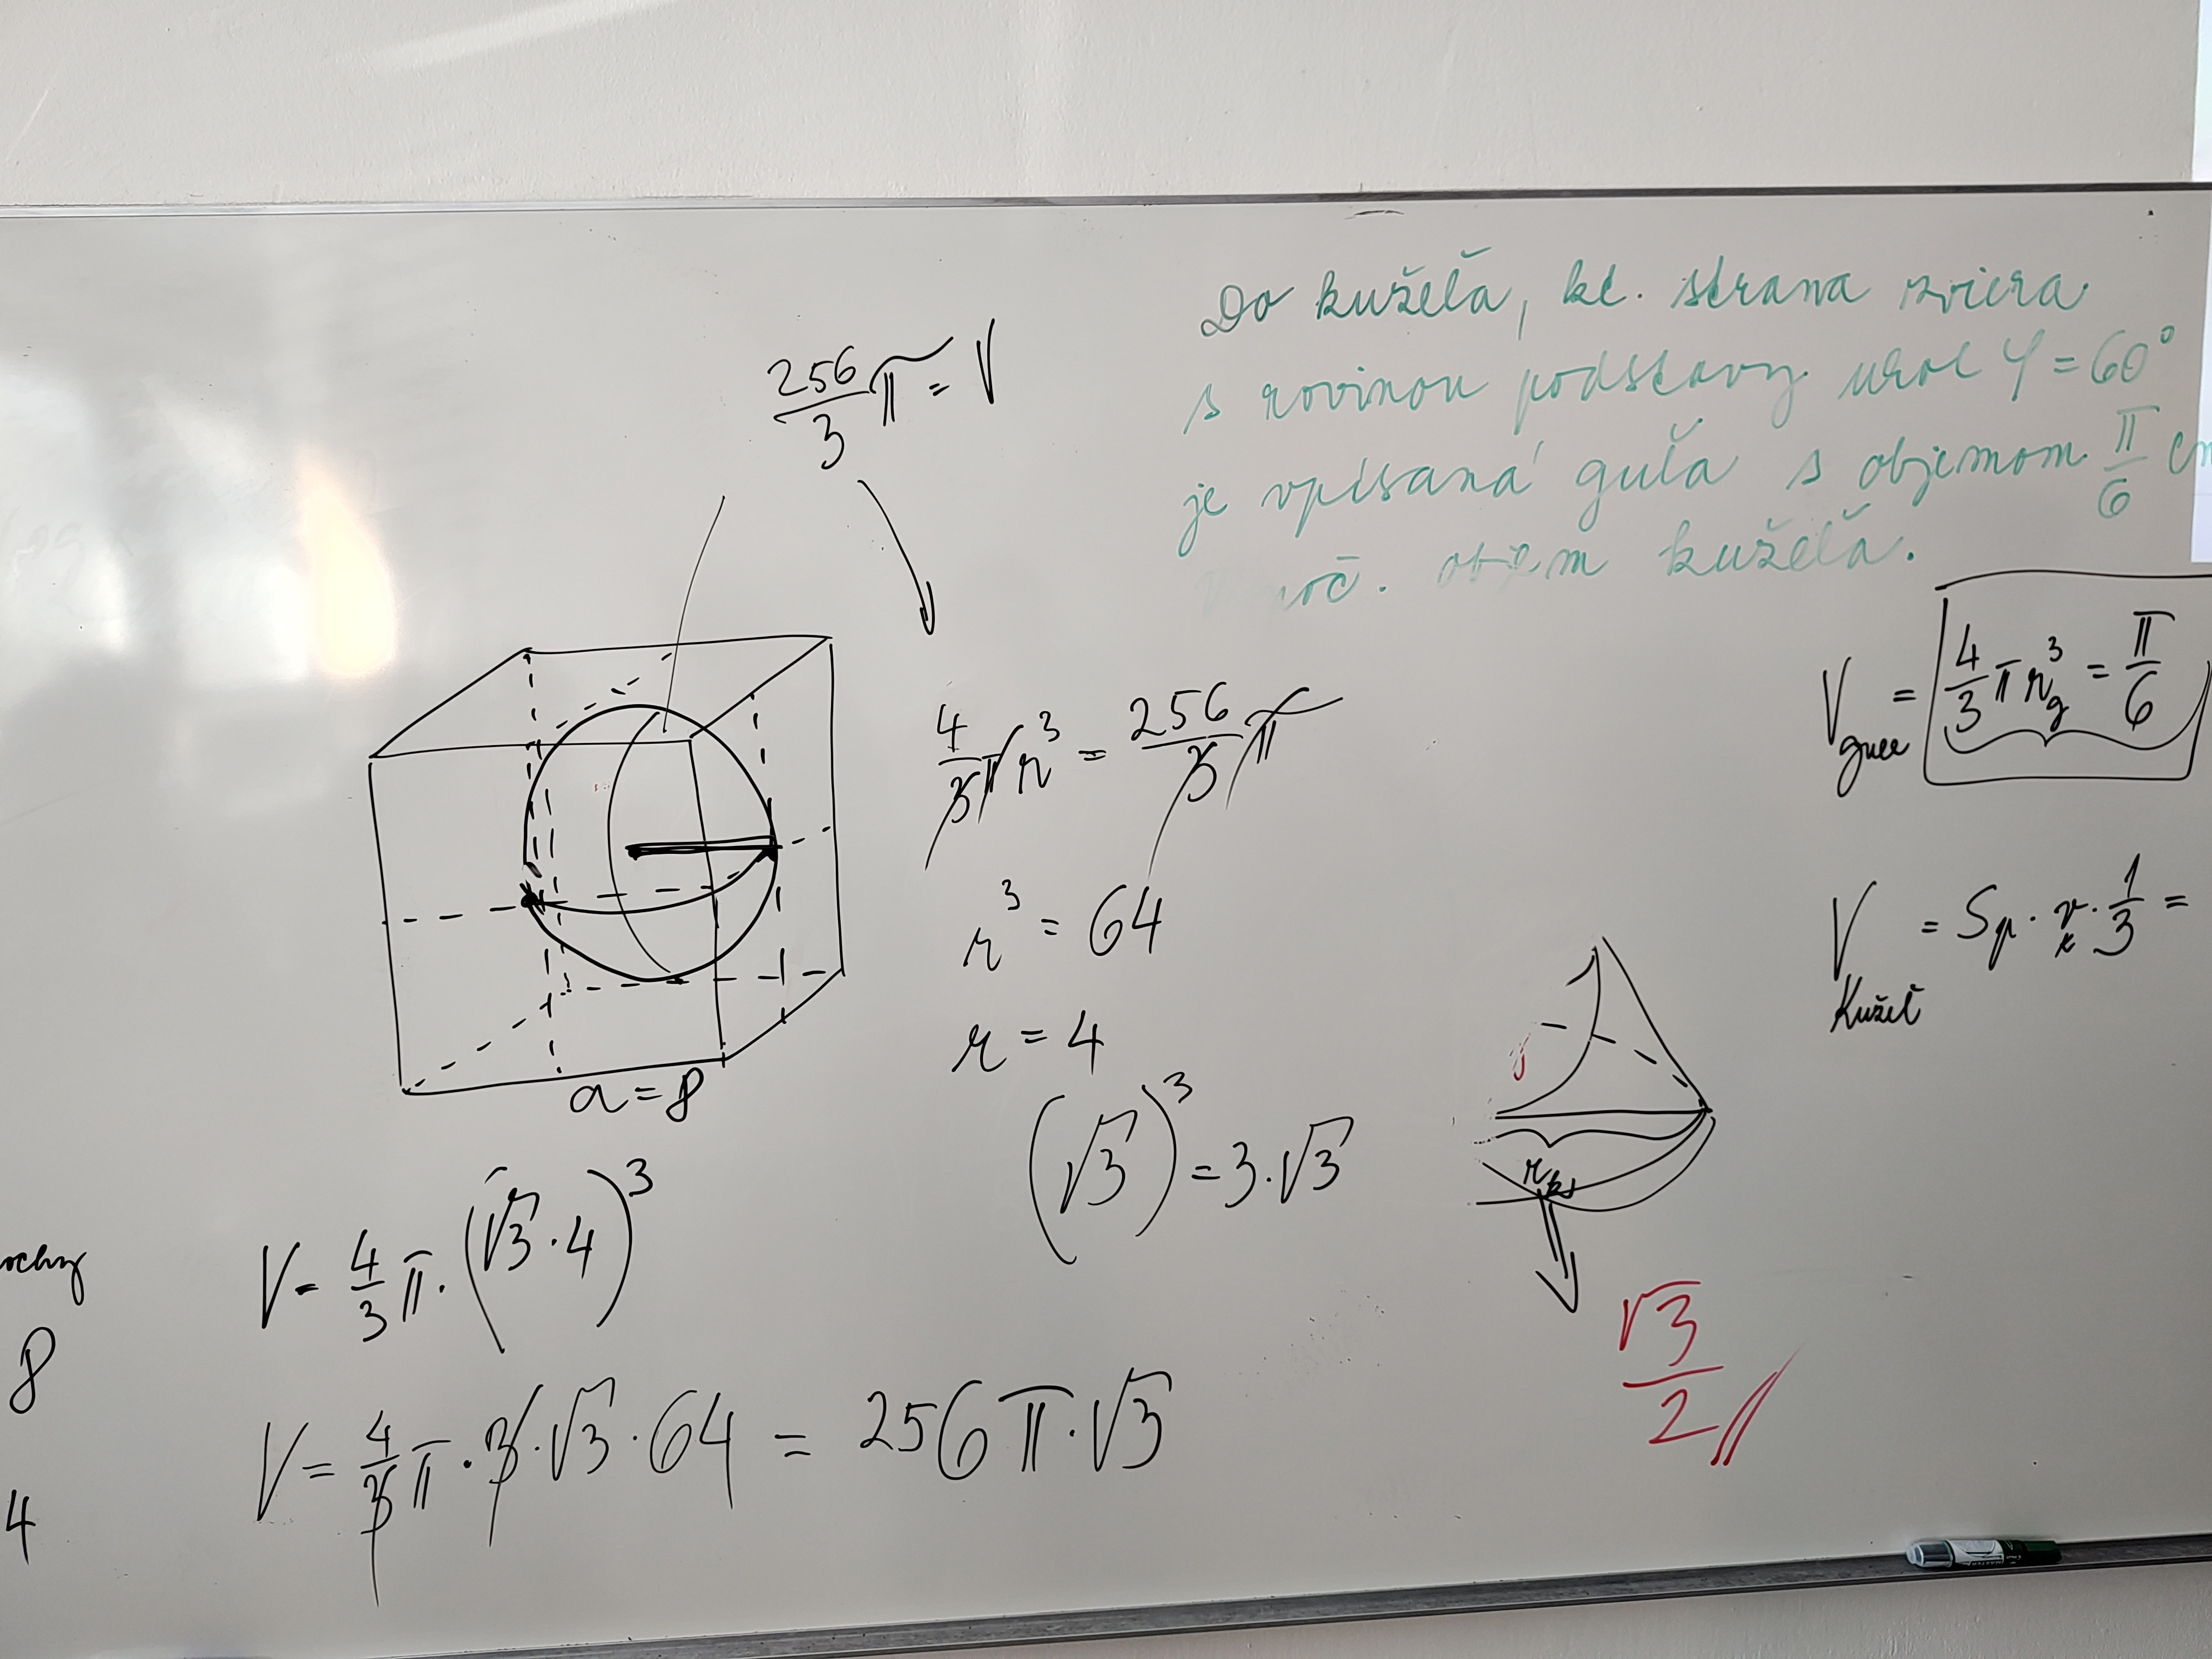 Do kužeľa, kt. strana zviera
s rovinou podstavy uhol φ = 60°
je vpísaná guľa s objemom π/6 cm
objem kužeľa.
256/3 π = V
4/3 π r³ = 256/3 π
r³ = 64
r = 4
a = 8
(√3)³ = 3·√3
V = 4/3 π · (√3 · 4)³
V = 4/3 π · 3 · √3 · 64 = 256 π · √3
8
4
V gule = 4/3 π r_g³ = π/6
V Kužeľ = Sp · v_k · 1/3 =
r_k
√3/2